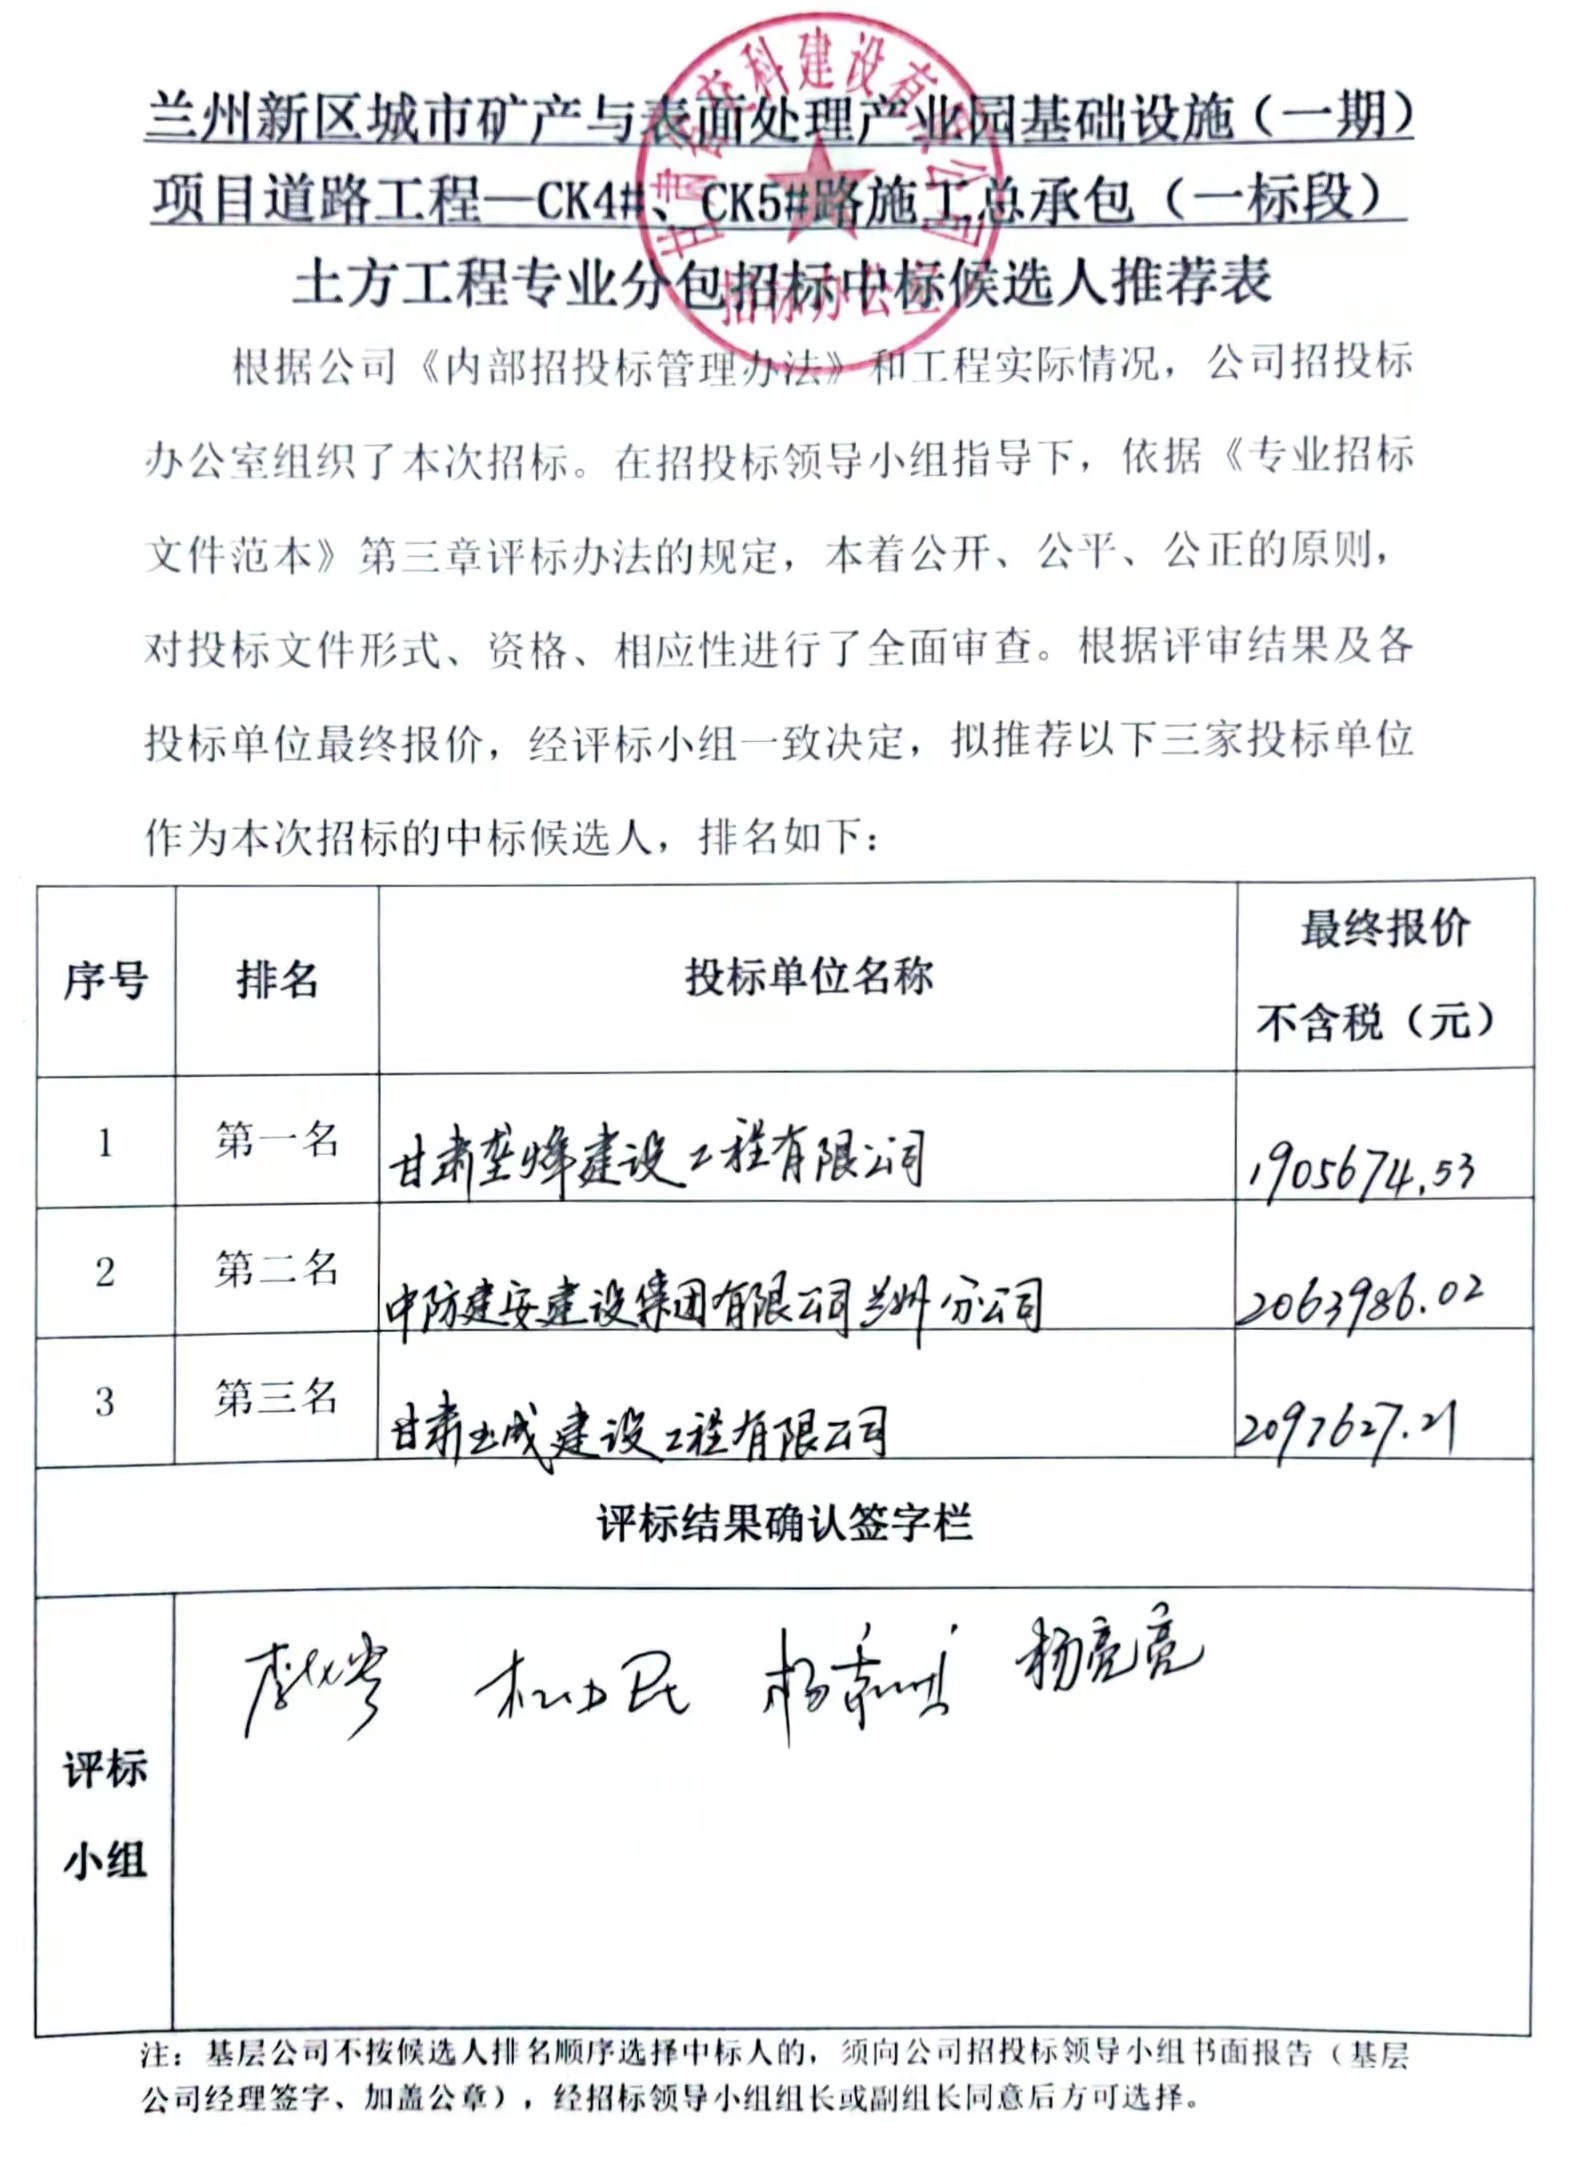 兰州新区城市矿产与表面处理产业园基础设施（一期）
项目道路工程—CK4#、CK5#路施工总承包（一标段）
土方工程专业分包招标中标候选人推荐表
招标办公室
根据公司《内部招投标管理办法》和工程实际情况，公司招投标
办公室组织了本次招标。在招投标领导小组指导下，依据《专业招标
文件范本》第三章评标办法的规定，本着公开、公平、公正的原则，
对投标文件形式、资格、相应性进行了全面审查。根据评审结果及各
投标单位最终报价，经评标小组一致决定，拟推荐以下三家投标单位
作为本次招标的中标候选人，排名如下：
序号 排名 投标单位名称 最终报价
不含税（元）
1 第一名 甘肃垄烽建设工程有限公司 1905674.53
2 第二名 中防建安建设集团有限公司兰州分公司 2063986.02
3 第三名 甘肃玉成建设工程有限公司 2097627.21
评标结果确认签字栏
杨亮亮
评标
小组
注：基层公司不按候选人排名顺序选择中标人的，须向公司招投标领导小组书面报告（基层
公司经理签字、加盖公章），经招标领导小组组长或副组长同意后方可选择。